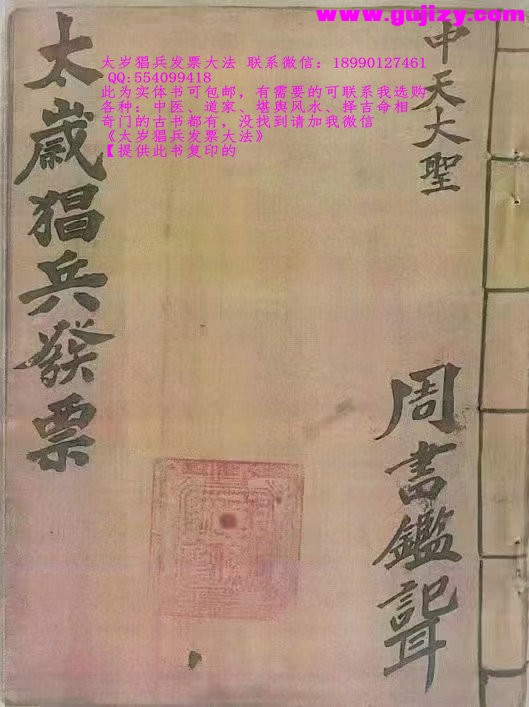 www.gujizy.com
太岁猖兵发票大法 联系微信：18990127461
QQ:554099418
此为实体书可包邮，有需要的可联系我选购
各种：中医、道家、堪舆风水、择吉命相
奇门的古书都有，没找到请加我微信
《太岁猖兵发票大法》
【提供此书复印的
中天大聖
周書鑑記
太歲猖兵發票